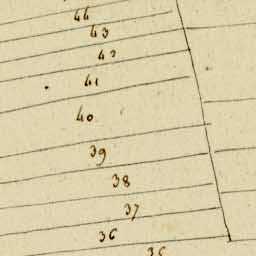 44
43
42
41
40
39
38
37
36
35